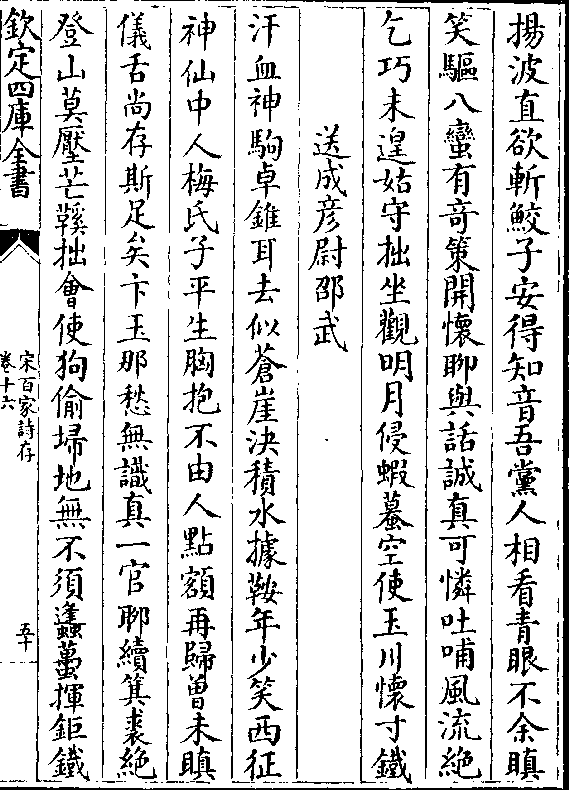 揚波直欲斬鮫子安得知音吾黨人相看青眼不余瞋
笑驅八蠻有竒策開懷聊與話誠真可憐吐哺風流絶
乞巧未遑姑守拙坐觀明月侵蝦蟇空使玉川懷寸鐵
送成彦尉邵武
汗血神駒卓錐耳去似蒼崖決積水據鞍年少笑西征
神仙中人梅氏子平生胸抱不由人點額再歸曽未瞋
儀舌尚存斯足矣卞玉那愁無識真一官聊續箕裘絶
登山莫壓芒鞵拙會使狗偷埽地無不須蠭蠆揮鉅鐵
欽定四庫全書
宋百家詩存
卷十六
五十